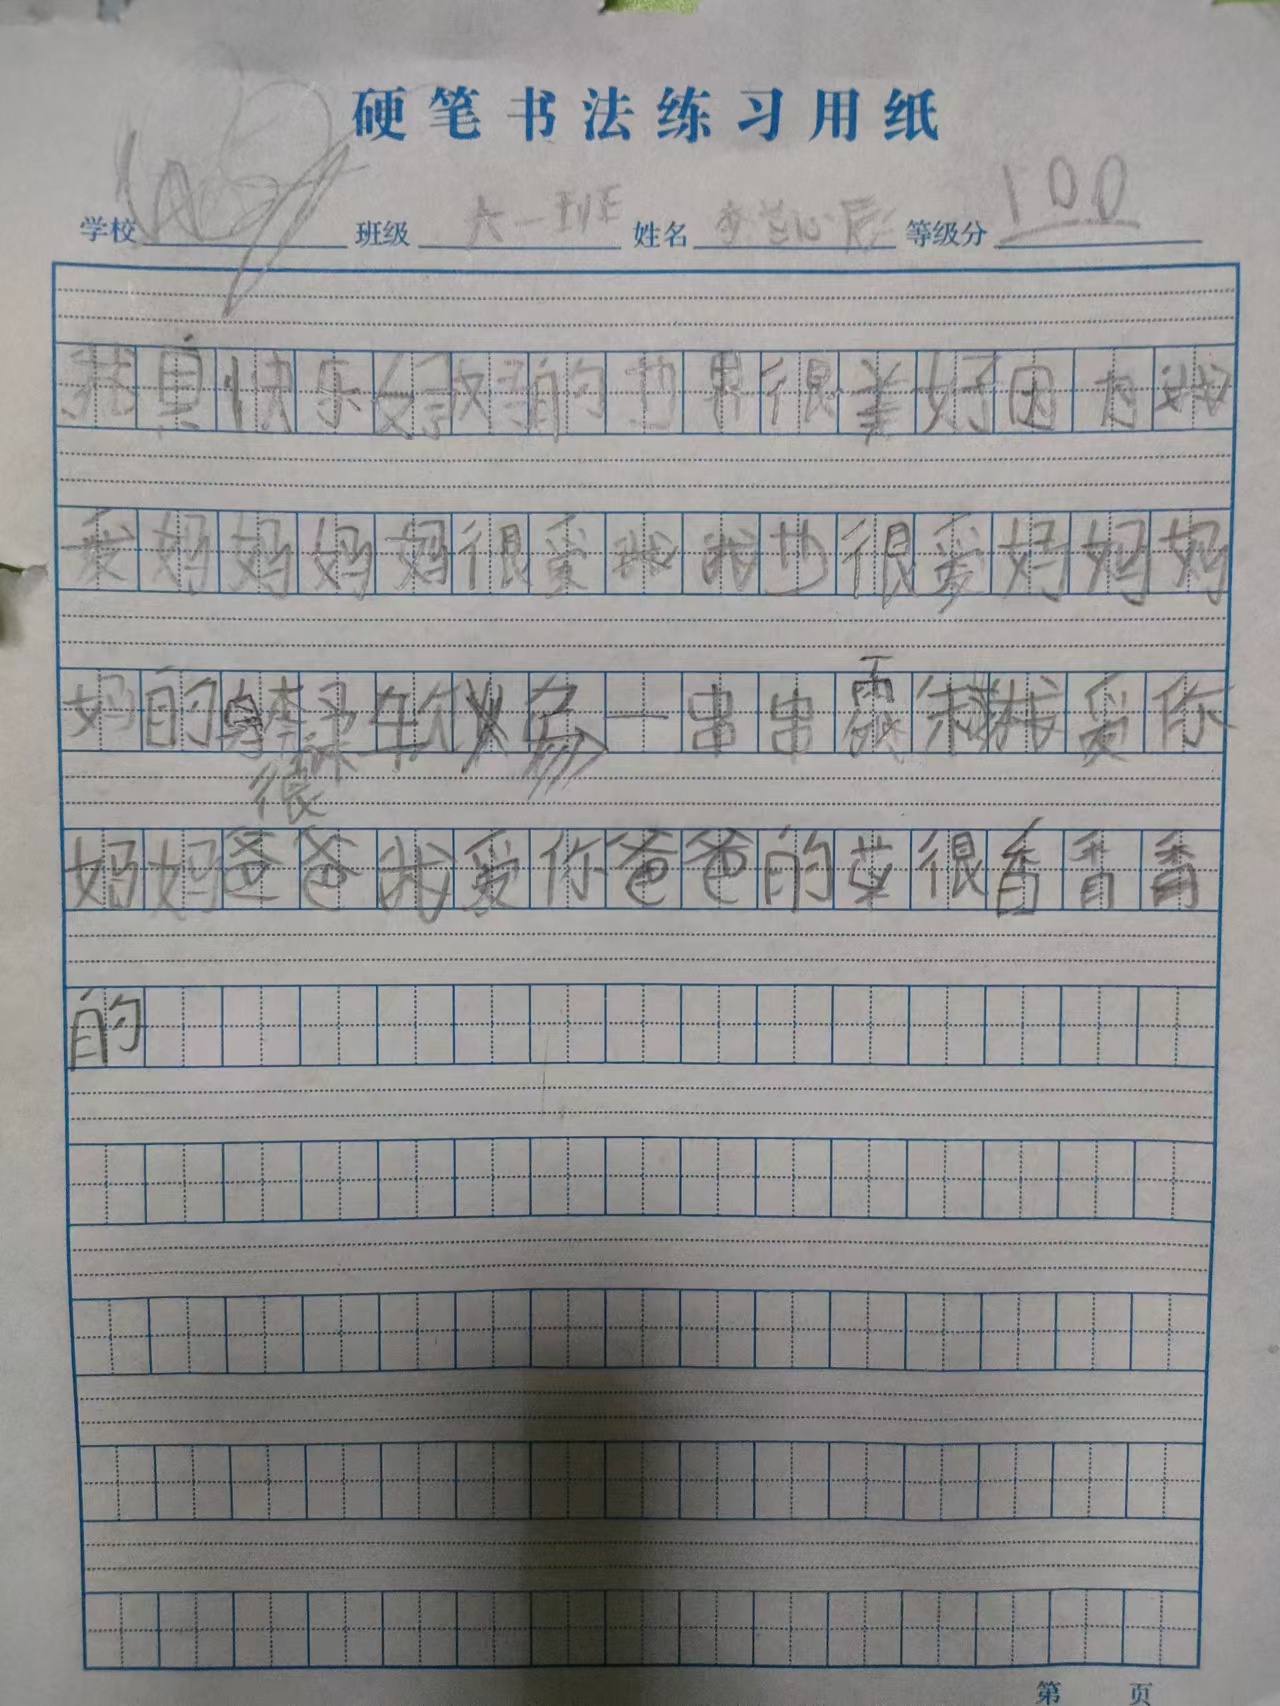 硬笔书法练习用纸
学校 班级 大一班 姓名 李 辰 等级分 100
我真快乐好 的世界很美好因为
爱妈妈妈妈很爱我我也很爱妈妈妈
妈的 一串串 我爱你
很
妈妈爸爸我爱你爸爸的菜很香香香
的
第 页